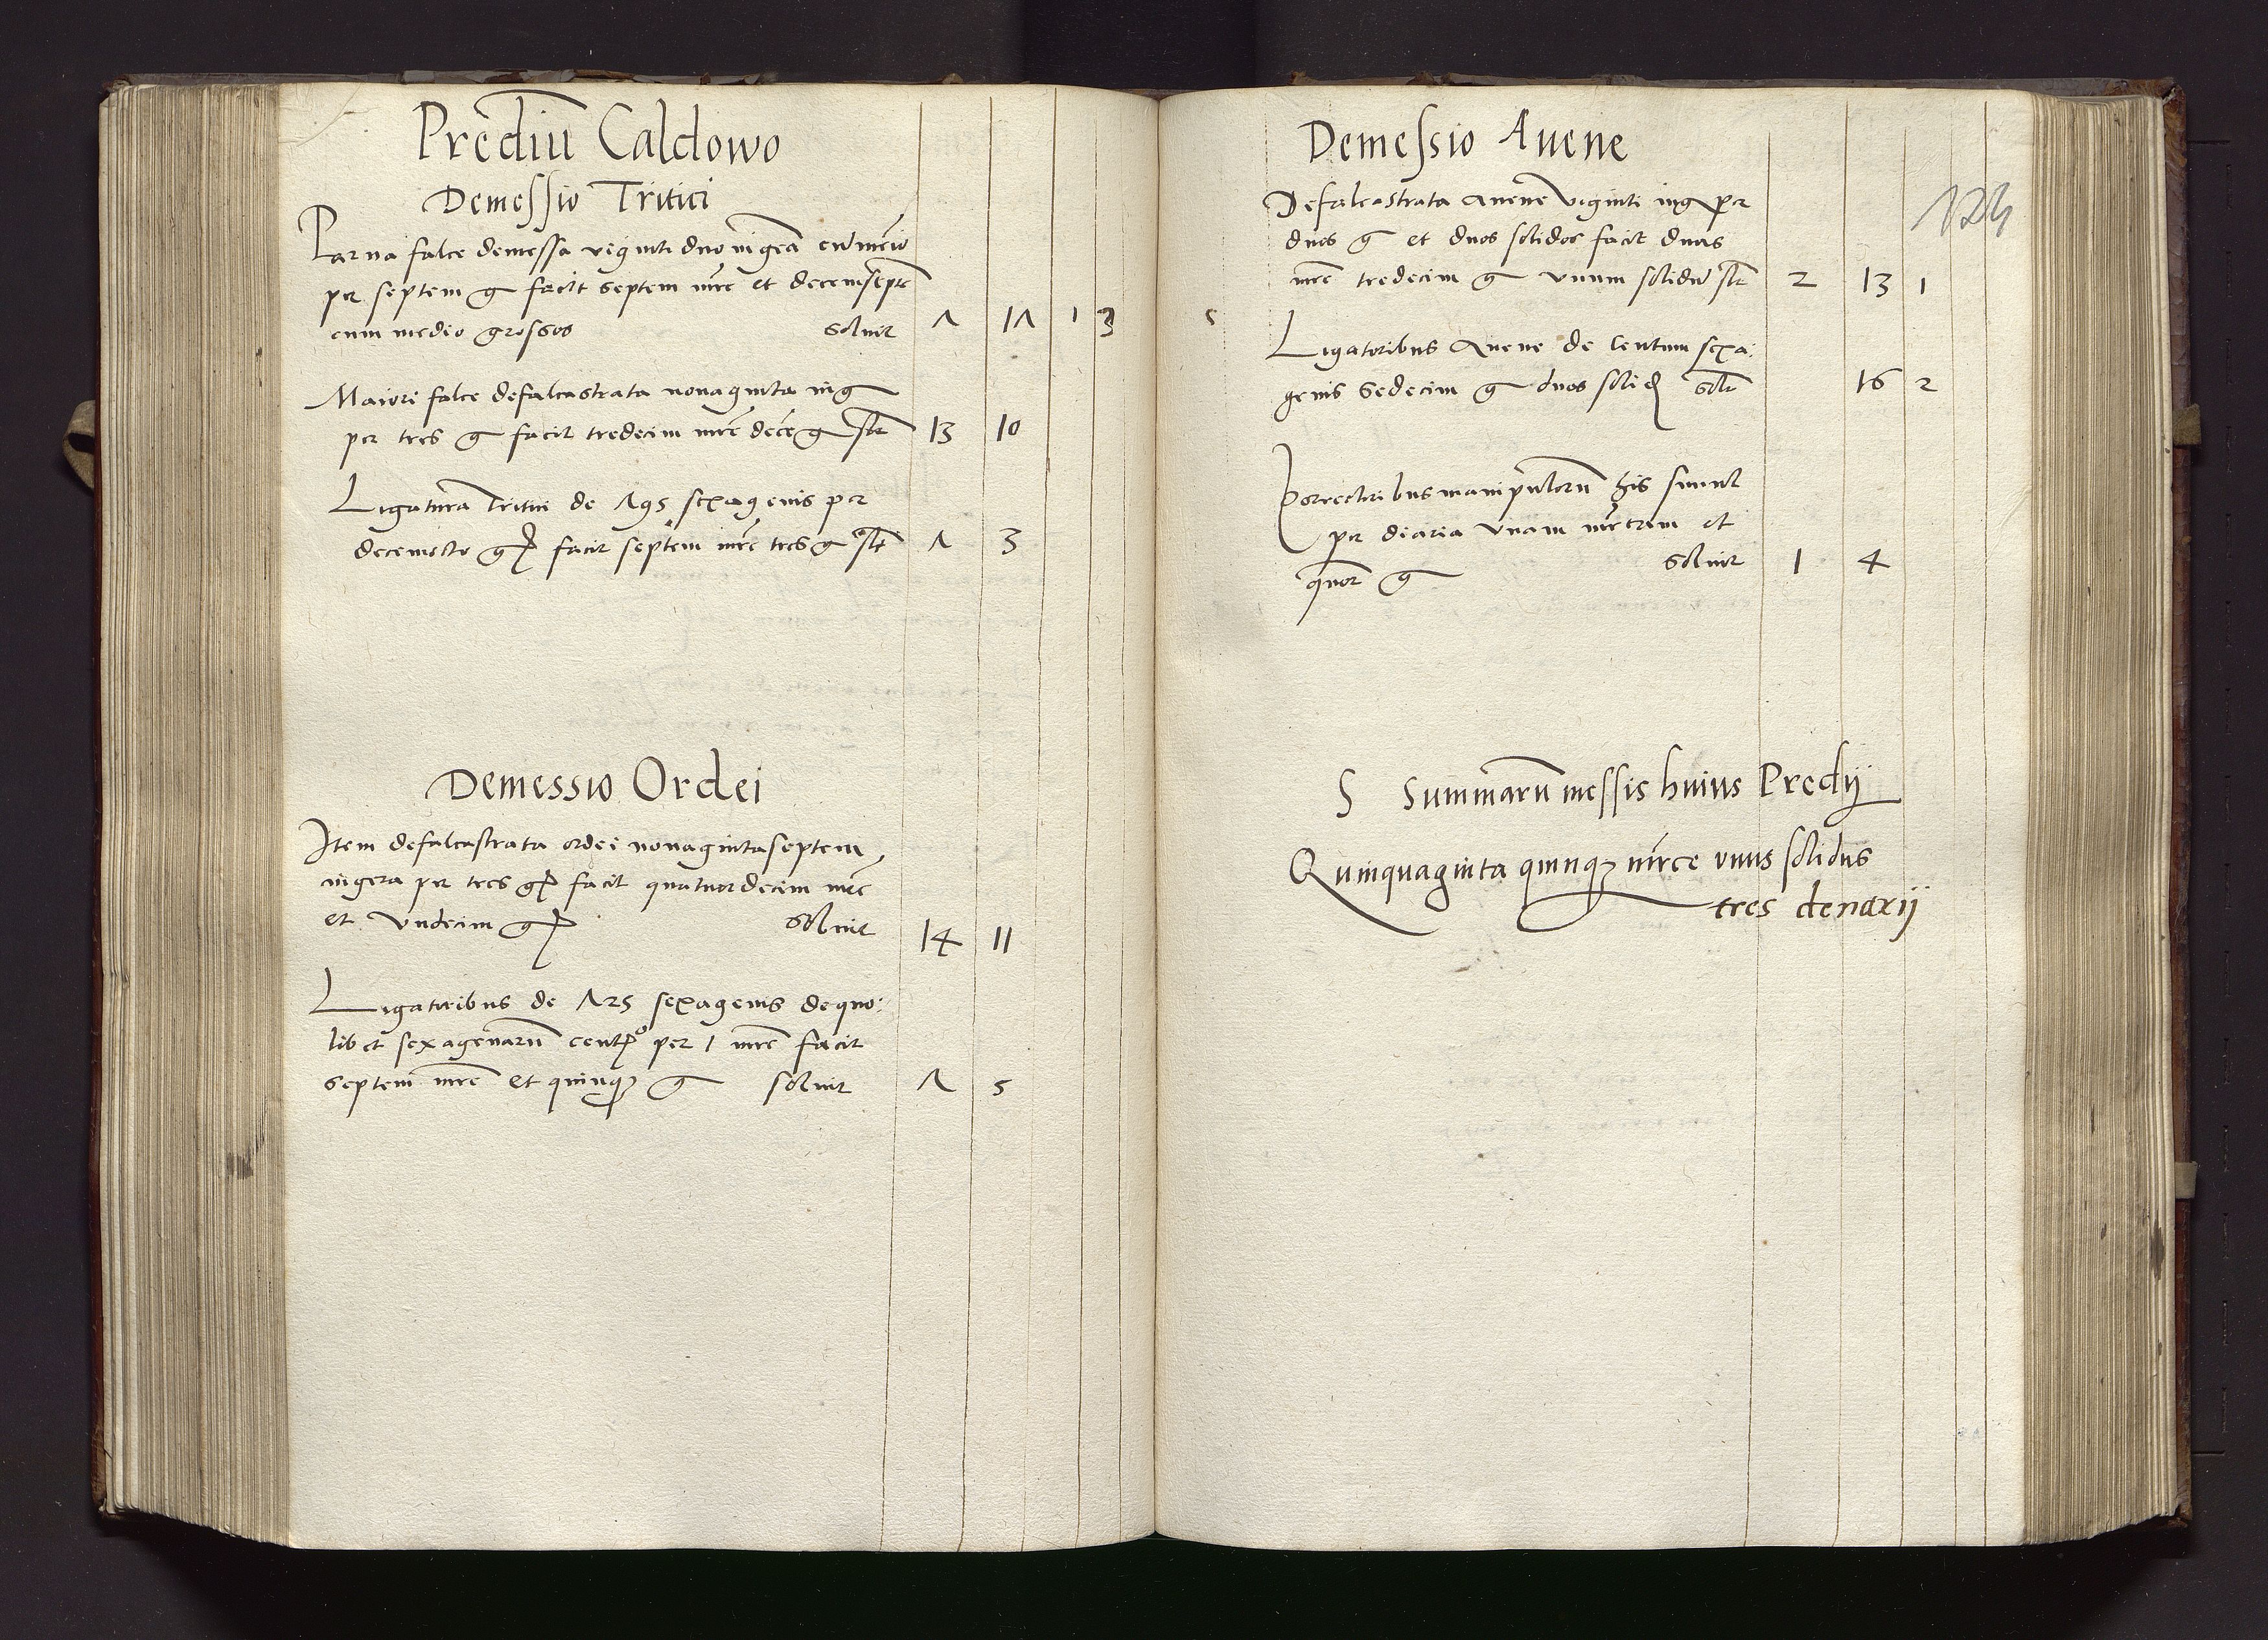 Prediū Caldowo
Demessio Tritici
Parva falce demessa viginti duo iugera cū medio
per septem g facit septem mrc et decemsepte
cum medio grossos solvit 7 17 1 3
Maiori falce defalcastrata nonaginta iug
per tres g facit tredecim mrc dece g solt 13 10
Ligatura Tritici de 795 sexagenis per
decemocto g facit septem mrc tres g solt 7 3
Demessio Ordei
Item defalcastrata ordei nonagintaseptem
iugera per tres g facit quatuordecim mrc
et undecim g solvit 14 11
Ligatoribus de 725 sexagenis de quo:
libet sexagenarū per 1 mrc facit
septem mrc et quinq g solvit 7 5
Demessio Avene
Defalcastrata avene viginti iug per
duos g et duos solidos facit duas
mrc tredecim g unum solidū solt 2 13 1
Ligatoribus Avene de Centum sexa:
genis sedecim g duos solid solt 16 2
Porrectoribus manipulorū his simul
per diaria unam mrcam et
quor g solvit 1 4
S Summarū messis huius Predij
Quinquaginta quinq mrce unus solidus
tres denarij